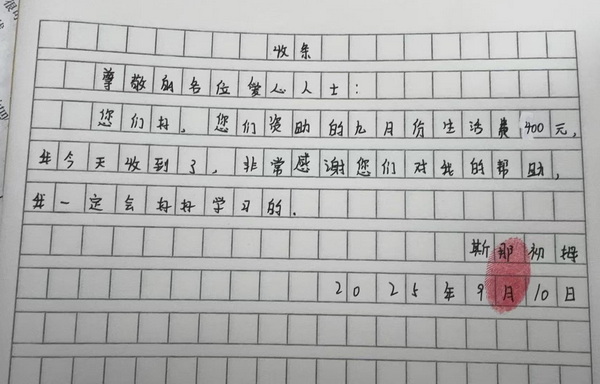 收条
尊敬的各位爱心人士：
您们好，您们资助的九月份生活费400元，
我今天收到了，非常感谢您们对我的帮助，
我一定会好好学习的．
斯那初姆
2025年9月10日